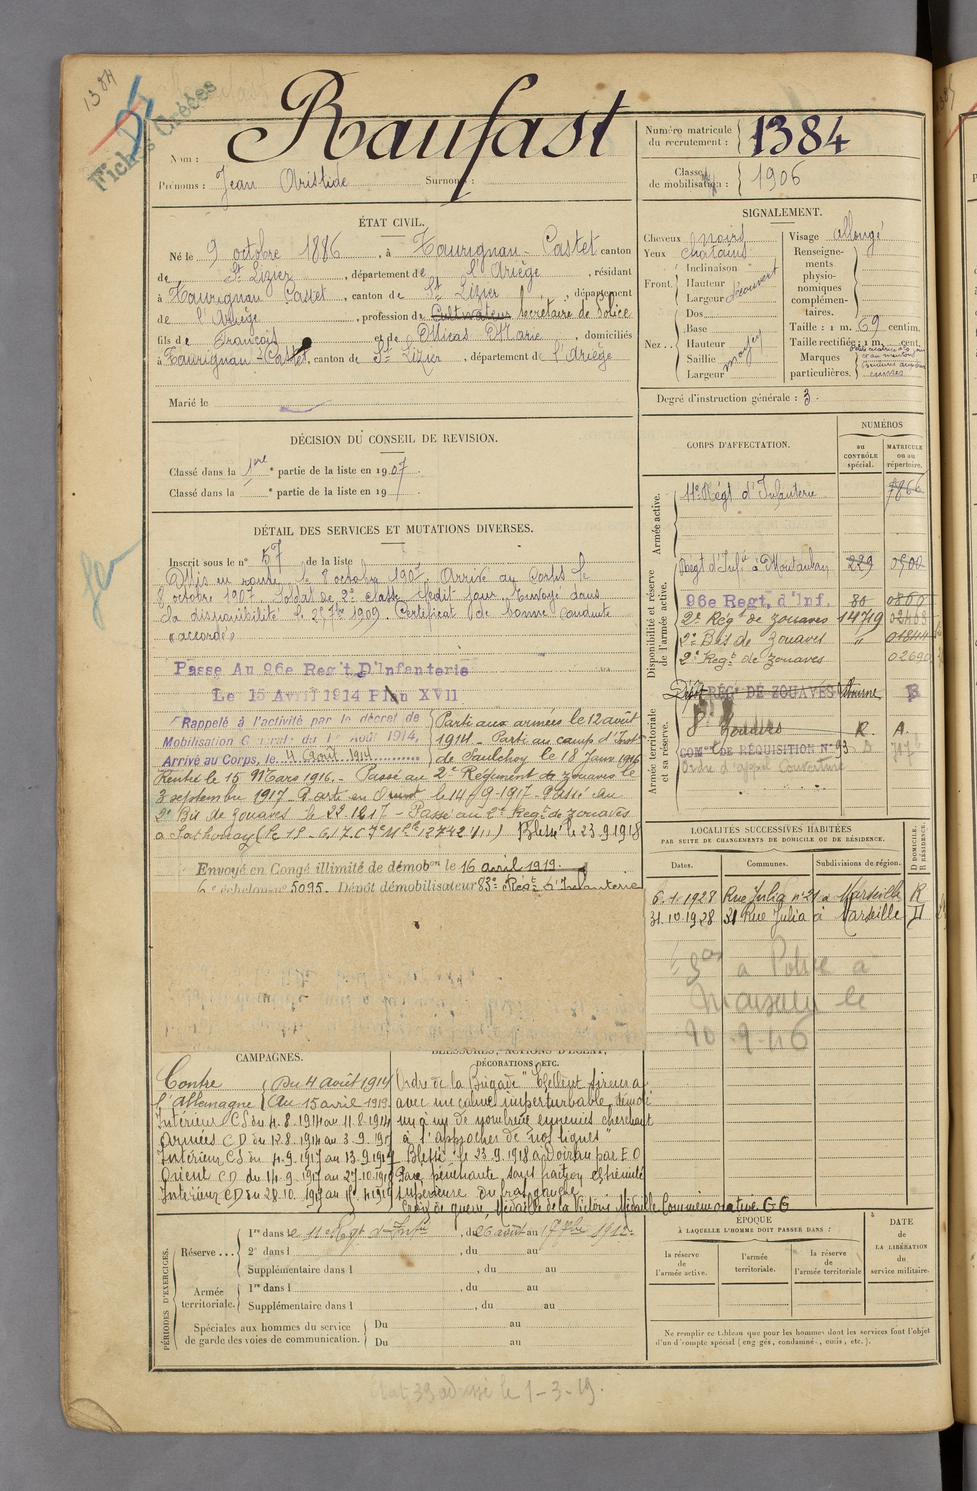 1384
Fiches Croisées
Nom : Raufast
Prénoms : Jean Aristide Surnoms :
Numéro matricule du recrutement : 1384
Classe de mobilisation : 1906
ÉTAT CIVIL.
Né le 9 octobre 1886, à Taurignan-Castet canton
de St Lizier, département de l'Ariège, résidant
à Taurignan Castet, canton de St Lizier, département
de l'Ariège, profession de Cultivateur Secrétaire de Police
fils de François et de Micas Marie, domiciliés
à Taurignan-Castet, canton de St Lizier, département de l'Ariège
Marié le
SIGNALEMENT.
Cheveux noirs
Yeux châtains
Front. Inclinaison
Hauteur
Largeur découvert
Nez... Dos
Base
Hauteur moyen
Saillie
Largeur
Visage allongé
Renseignements physionomiques complémentaires.
Taille : 1 m. 69 centim.
Taille rectifiée : 1 m. cent.
Marques particulières.
Degré d'instruction générale : 3
DÉCISION DU CONSEIL DE REVISION.
Classé dans la 1ère partie de la liste en 1907.
Classé dans la e partie de la liste en 19
DÉTAIL DES SERVICES ET MUTATIONS DIVERSES.
Inscrit sous le n° 57 de la liste
Mis en route le 8 octobre 1907. Arrivé au Corps le
8 octobre 1907. Soldat de 2e classe ledit jour. Envoyé dans
la disponibilité le 25 7bre 1909. Certificat de bonne conduite
"accordé"
Passe Au 96e Reg't D'Infanterie
Le 15 Avril 1914 Plan XVII
Rappelé à l'activité par le décret de
Mobilisation Générale du 1er Août 1914,
Arrivé au Corps, le 4 Août 1914
Parti aux armées le 12 août
1914 - Parti au camp d'Inst
de Saulchoy le 18 Janv 1916
Rentré le 15 Mars 1916. - Passé au 2e Régiment de zouaves le
3 septembre 1917 Parti en Orient le 14-9-1917 Passé au
2e Bis de Zouaves le 22.12.17 - Passé au 2e Regt de zouaves
à Sathonay Blessé le 23.9.1918
Envoyé en Congé illimité de démobon le 16 avril 1919.
6e échelon n° 5095. Dépôt démobilisateur 83e Régt d'Infanterie
CORPS D'AFFECTATION.
NUMÉROS
au CONTRÔLE spécial.
MATRICULE ou au répertoire.
Armée active.
11e Régt d'Infanterie 7866
Disponibilité et réserve de l'armée active.
Regt d'Infie à Montauban 229 0500
96e Regt. d'Inf. 80 0860
2e Régt de zouaves 14719 02408
2e Bis de Zouaves " 01844
2e Regt de zouaves 02690
Armée territoriale et sa réserve.
Dépôt RÉGt DE ZOUAVES
8e Zouaves R. A.
COMon DE RÉQUISITION N° 93
Ordre d'appel Couverture
LOCALITÉS SUCCESSIVES HABITÉES
PAR SUITE DE CHANGEMENTS DE DOMICILE OU DE RÉSIDENCE.
Dates. Communes. Subdivisions de région. D DOMICILE. R RÉSIDENCE.
6.1.1928 Rue Julia n° 21 à Marseille R
31.10.1928 31 Rue Julia à Marseille D
CAMPAGNES.
Contre l'Allemagne
Du 4 août 1914
Au 15 avril 1919
Intérieur CS du 4.8.1914 au 11.8.1914
Armées CD du 12.8.1914 au 3.9.1917
Intérieur CS du 4.9.1917 au 13.9.1917
Orient CD du 14.9.1917 au 27.10.1918
Intérieur CD du 28.10.1918 au 15.4.1919
BLESSURES, ACTIONS D'ÉCLAT,
DÉCORATIONS, ETC.
Ordre de la Brigade "Excellent tireur a
avec un calme imperturbable, démoli
un à un de nombreux ennemis cherchant
à s'approcher de nos lignes"
Blessé le 23.9.1918 à Doiran par E.O
Plaie pénétrante sans fraction extrémité
supérieure du bras gauche
Croix de guerre, Médaille de la Victoire Médaille Commémorative GG
PÉRIODES D'EXERCICES.
Réserve... 1re dans le 11e Regt d'Infie, du 26 août au 17 7bre 1912.
2e dans l , du au
Supplémentaire dans l , du au
Armée territoriale. 1re dans l , du au
Supplémentaire dans l , du au
Spéciales aux hommes du service de garde des voies de communication. Du au
Du au
ÉPOQUE
À LAQUELLE L'HOMME DOIT PASSER DANS :
la réserve de l'armée active.
l'armée territoriale.
la réserve de l'armée territoriale
DATE DE LA LIBÉRATION du service militaire.
Ne remplir ce tableau que pour les hommes dont les services font l'objet
d'un décompte spécial (engagés, condamnés, omis, etc.).
État 39 adressé le 1-3-19.